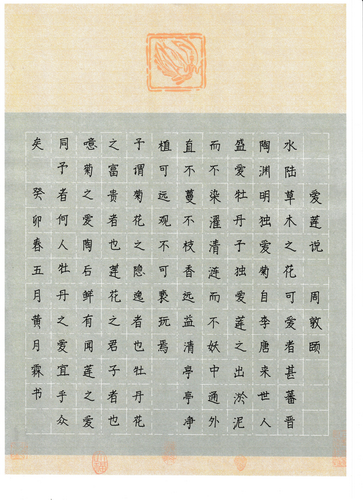 爱莲说 周敦颐
水陆草木之花可爱者甚蕃晋
陶渊明独爱菊自李唐来世人
盛爱牡丹予独爱莲之出淤泥
而不染濯清涟而不妖中通外
直不蔓不枝香远益清亭亭净
植可远观不可亵玩焉
予谓菊花之隐逸者也牡丹花
之富贵者也莲花之君子者也
噫菊之爱陶后鲜有闻莲之爱
同予者何人牡丹之爱宜乎众
矣 癸卯春五月黄月霖书